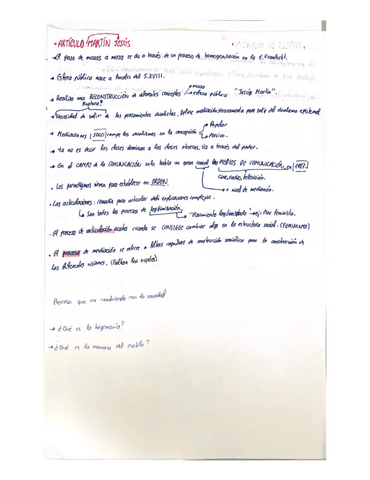 • ARTÍCULO MARTÍN JESÚS
• El paso de masas a masa se da a través de un proceso de homogeneización en la E. Frankfurt.
• Esfera pública nace a finales del S.XVIII.
• Realiza una RECONSTRUCCIÓN de diferentes conceptos masa esfera pública "Jesús Martín".
Ruptura?
• Necesidad de salir de los pensamientos dualistas. Define mediación para salir del dualismo
• Mediaciones (SOCO) rompe los dualismos en la concepción Popular
Masivo.
• Ya no es decir las clases dominan a las clases obreras, vía a través del poder.
• En el CAMPO de la COMUNICACIÓN solo había un gran canal los MEDIOS DE COMUNICACIÓN en 1987
cine, radio, televisión.
+ nivel de mediación.
• Los paradigmas sirven para establecer un ORDEN.
• Las articulaciones: comodín para articular explicaciones complejas.
Son todos los procesos de legitimización "Movimiento legitimador" → ej: Mov. feminista.
• El proceso de articulación acaba cuando se CONSIGUE cambiar algo en la estructura social. (FEMINISMO)
• El proceso de mediación se refiere a de construcción semiótica para la construcción de
las diferentes visiones. (Faltan los sujetos)
Proceso que va cambiando con la sociedad
→ ¿Qué es la hegemonía?
→ ¿Qué es la memoria del pueblo?